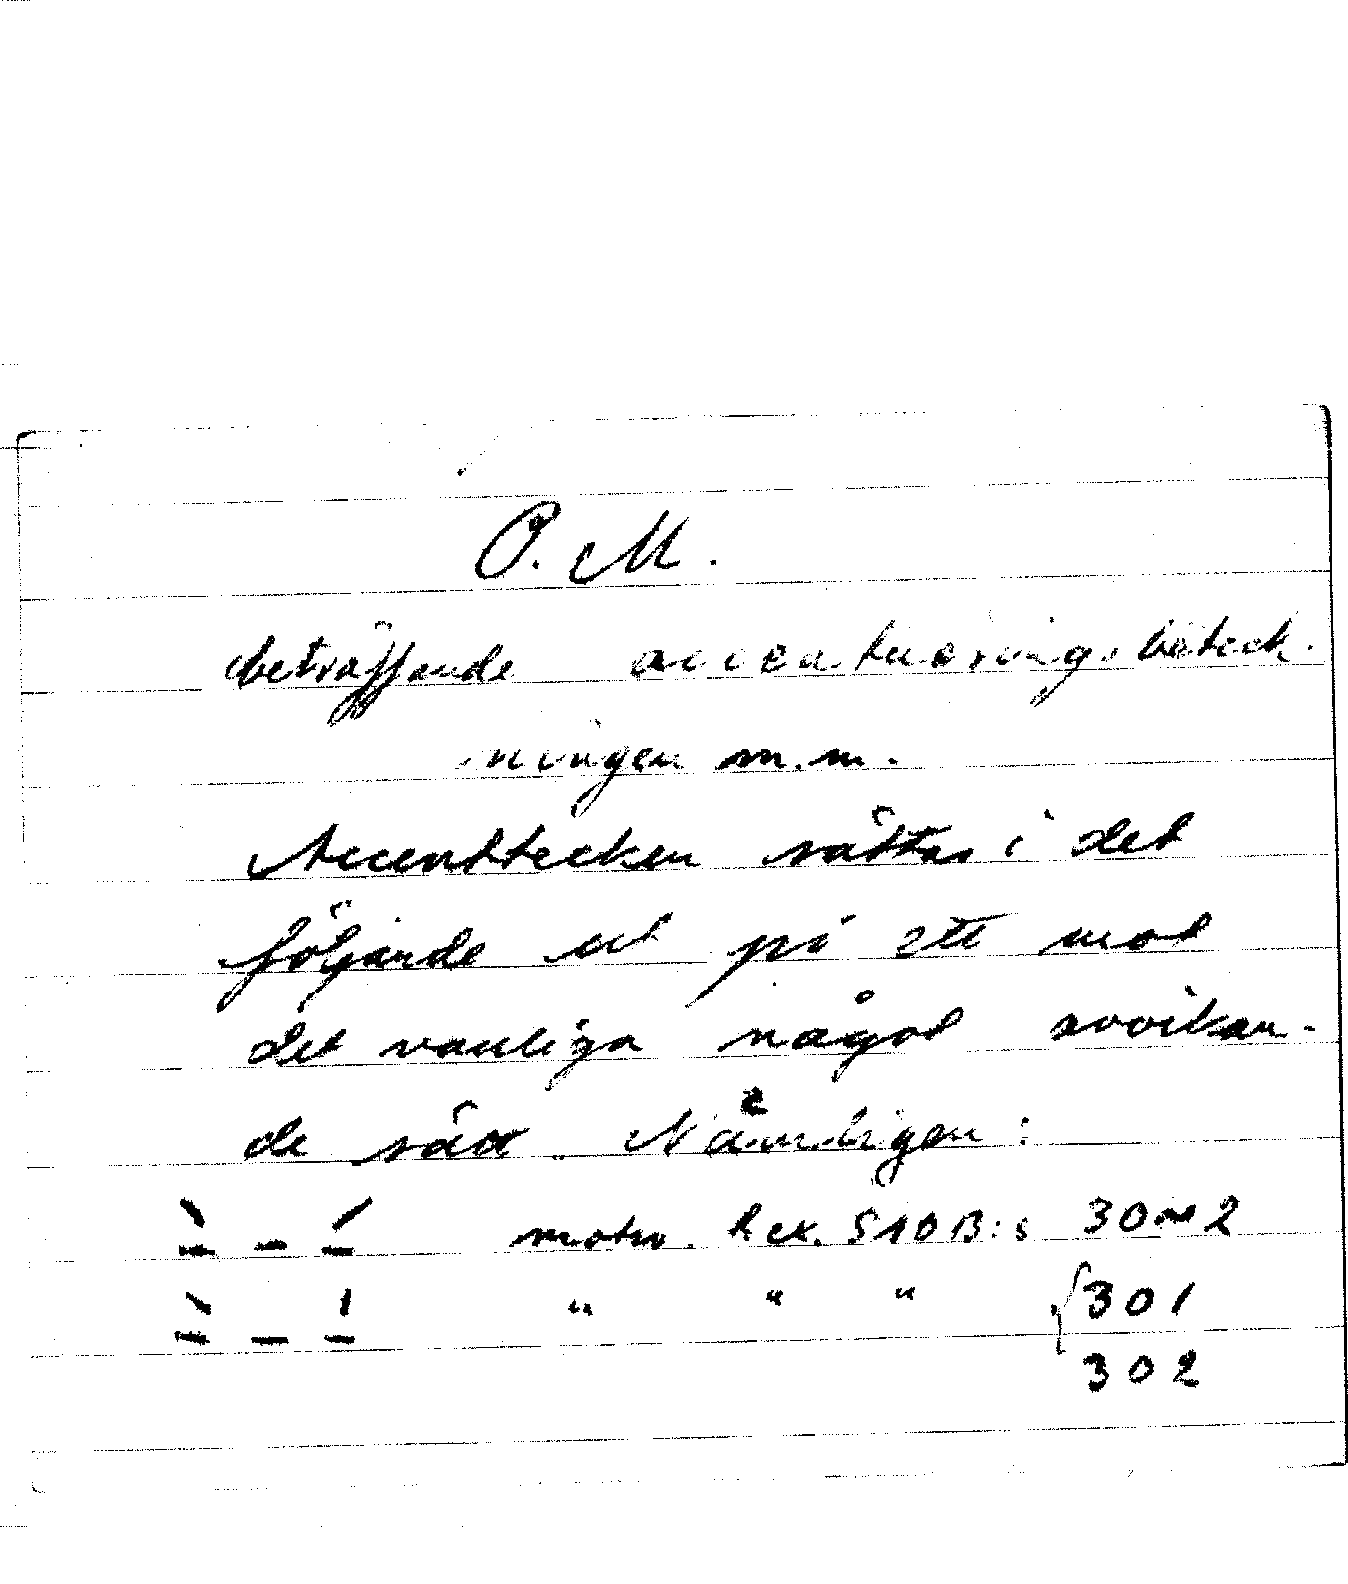 P. M.
beträffande accentueringsbeteck-
ningen m. m.
Accenttecken sättas i det
följande ut på ett mot
det vanliga något avvikan-
de sätt. Nämligen:
motsv. t. ex. SAOB:s 30~2
" " " { 301
302